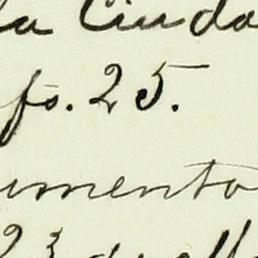 la Ciuda
fs. 25.
umento
23 de